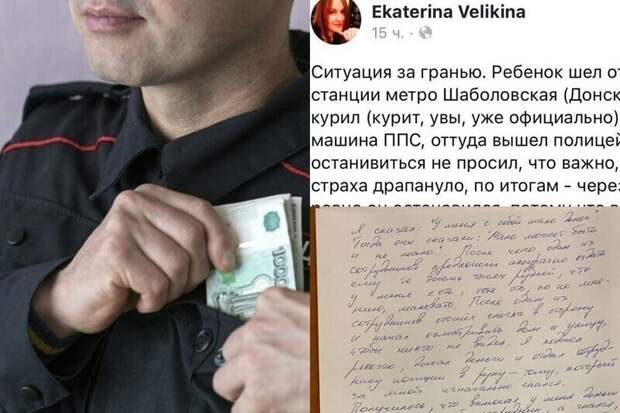 Ekaterina Velikina
15 ч.
Ситуация за гранью. Ребенок шел от
станции метро Шаболовская (Донск
курил (курит, увы, уже официально)
машина ППС, оттуда вышел полицей
остановиться не просил, что важно,
страха драпануло, по итогам - через
Я сказал: "У меня с собой мало денег".
Тогда они сказали: "Мало может быть
и не мало". После чего один из
сотрудников предложил аккуратно отдать
ему те тысяч рублей, что
у меня есть, хотя это, по их мне-
нию, маловато. После один из
сотрудников отошёл слегка в сторону
и начал осматривать дом и улицу,
чтобы никто не видел. Я
достал деньги и отдал сотруд-
нику полиции в руку - тому, который
за мной изначально гнался.
Получилось, что у меня деньги
1000